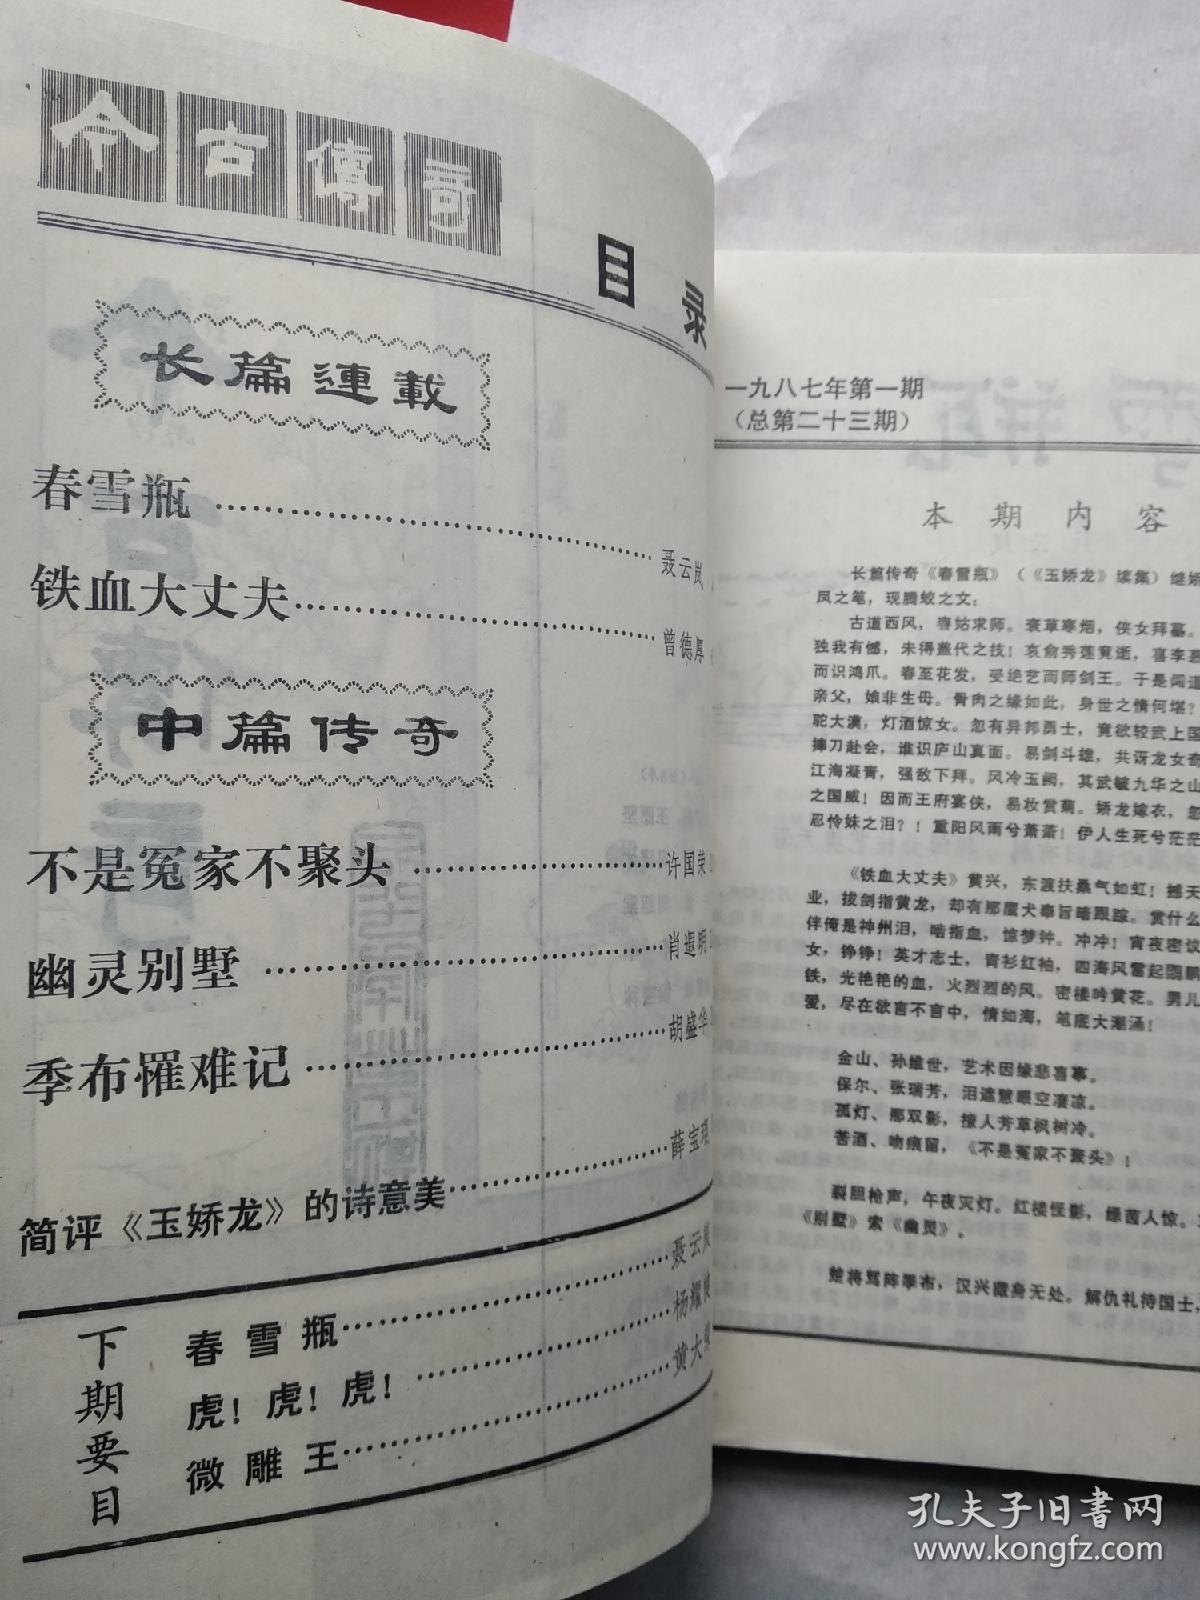 今古傳奇
目录
长篇連載
春雪瓶……聂云岚
铁血大丈夫……曾德厚
中篇传奇
不是冤家不聚头……许国荣
幽灵别墅……肖遐明
季布罹难记……胡盛华
简评《玉娇龙》的诗意美……薛宝琨
下期要目
春雪瓶……聂云岚
虎！虎！虎！……杨耀
微雕王……黄大
一九八七年第一期
（总第二十三期）
本期内容
长篇传奇《春雪瓶》（《玉娇龙》续集）继
凤之笔，现腾蛟之文：
古道西风，春姑求师。衰草寒烟，侠女拜墓。
独我有憾，未得盖代之技！哀俞秀莲竟逝，喜李慕
而识鸿爪。春至花发，受绝艺而师剑王。于是闻道
亲父，娘非生母。骨肉之缘如此，身世之情何堪？
驼大漠，灯酒惊女。忽有异邦勇士，竟欲较武上国
捧刀赴会，谁识庐山真面。易剑斗雄，共讶龙女奇
江海凝膏，强敌下拜。风冷玉阙，其武毓九华之山
之国威！因而王府宴侠，易妆赏菊。娇龙嫁衣，忽
忍怜妹之泪？！重阳风雨兮萧萧！伊人生死兮茫茫
《铁血大丈夫》黄兴，东渡扶桑气如虹！撼天
业，拔剑指黄龙，却有那鹰犬奉旨暗跟踪。赏什么
伴俺是神州泪，啮指血，惊梦钟。冲冲！宵夜密议
女，铮铮！英才志士，青衫红袖，四海风雷起鹍鹏
铁，光艳艳的血，火烈烈的风。密楼吟黄花。男儿
爱，尽在欲言不言中，情如海，笔底大潮涌！
金山、孙维世，艺术因缘悲喜事。
保尔、张瑞芳，泪遮慧眼空凄凉。
孤灯、那双影，撩人芳草枫树冷。
苦酒、吻痕留，《不是冤家不聚头》！
裂胆枪声，午夜灭灯。红楼怪影，绿茵人惊。
《别墅》索《幽灵》。
楚将骂阵季布，汉兴藏身无处。解仇礼待国士，
孔夫子旧书网
www.kongfz.com